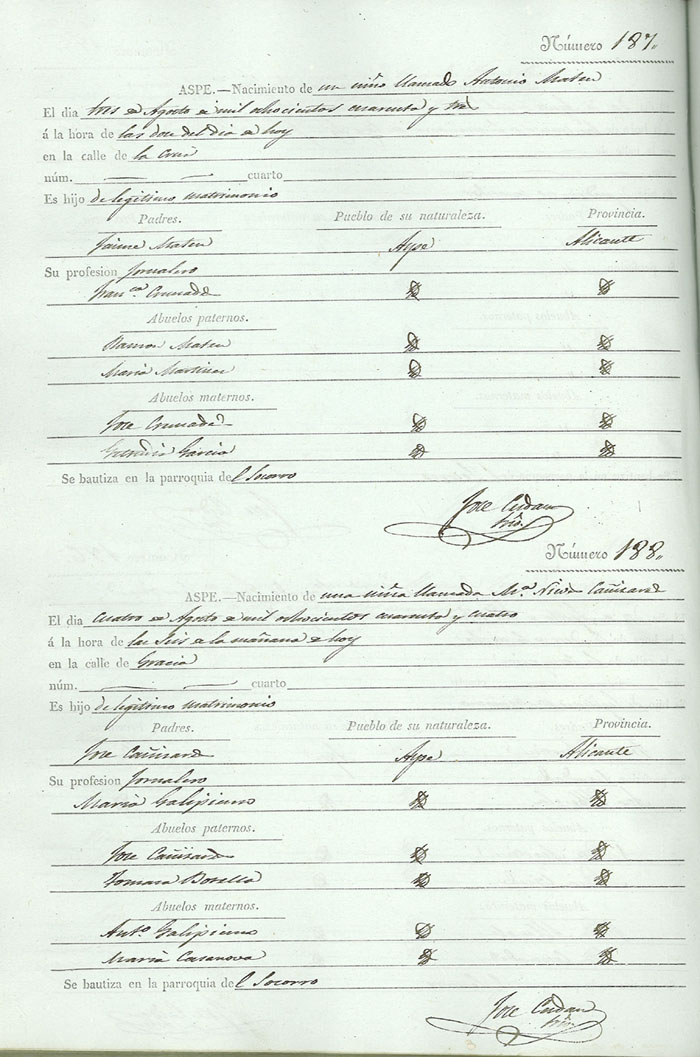 Número 187.
ASPE.—Nacimiento de un niño llamado Antonio Mateu
El dia tres de Agosto de mil ochocientos cuarenta y tres
á la hora de las doce del dia de hoy
en la calle de la Cruz
núm. — — cuarto
Es hijo de legitimo matrimonio
Padres. Pueblo de su naturaleza. Provincia.
Jaime Mateu Aspe Alicante
Su profesion Jornalero
Fran.ca
Abuelos paternos.
Ramon Mateu
Maria Martinez
Abuelos maternos.
Jose
Garcia
Se bautiza en la parroquia del Socorro
Jose
Número 188.
ASPE.—Nacimiento de una niña llamada M.ª Cañizares
El dia cuatro de Agosto de mil ochocientos cuarenta y cuatro
á la hora de las seis de la mañana de hoy
en la calle de Gracia
núm. — — cuarto
Es hijo de legitimo matrimonio
Padres. Pueblo de su naturaleza. Provincia.
Jose Cañizares Aspe Alicante
Su profesion Jornalero
Maria Galipienso
Abuelos paternos.
Jose Cañizares
Tomasa Botella
Abuelos maternos.
Ant.º Galipienso
Maria Casanova
Se bautiza en la parroquia del Socorro
Jose